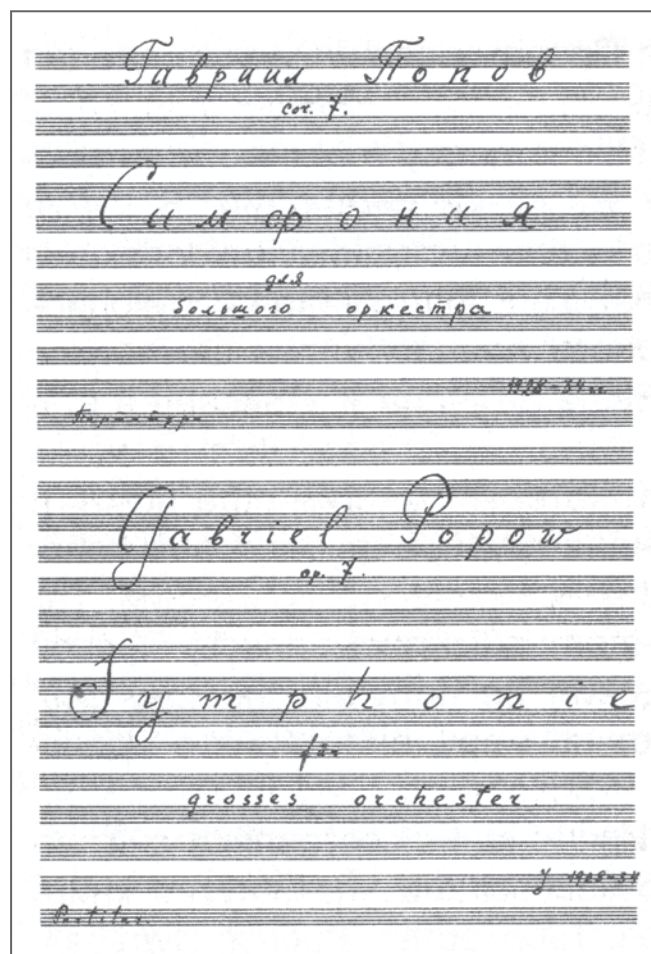 Гавриил Попов
соч. 7.
Симфония
для
большого оркестра
1928-34 гг.
Партитура
Gabriel Popow
op. 7.
Symphonie
für
grosses orchester
J 1928-34
Partitur.